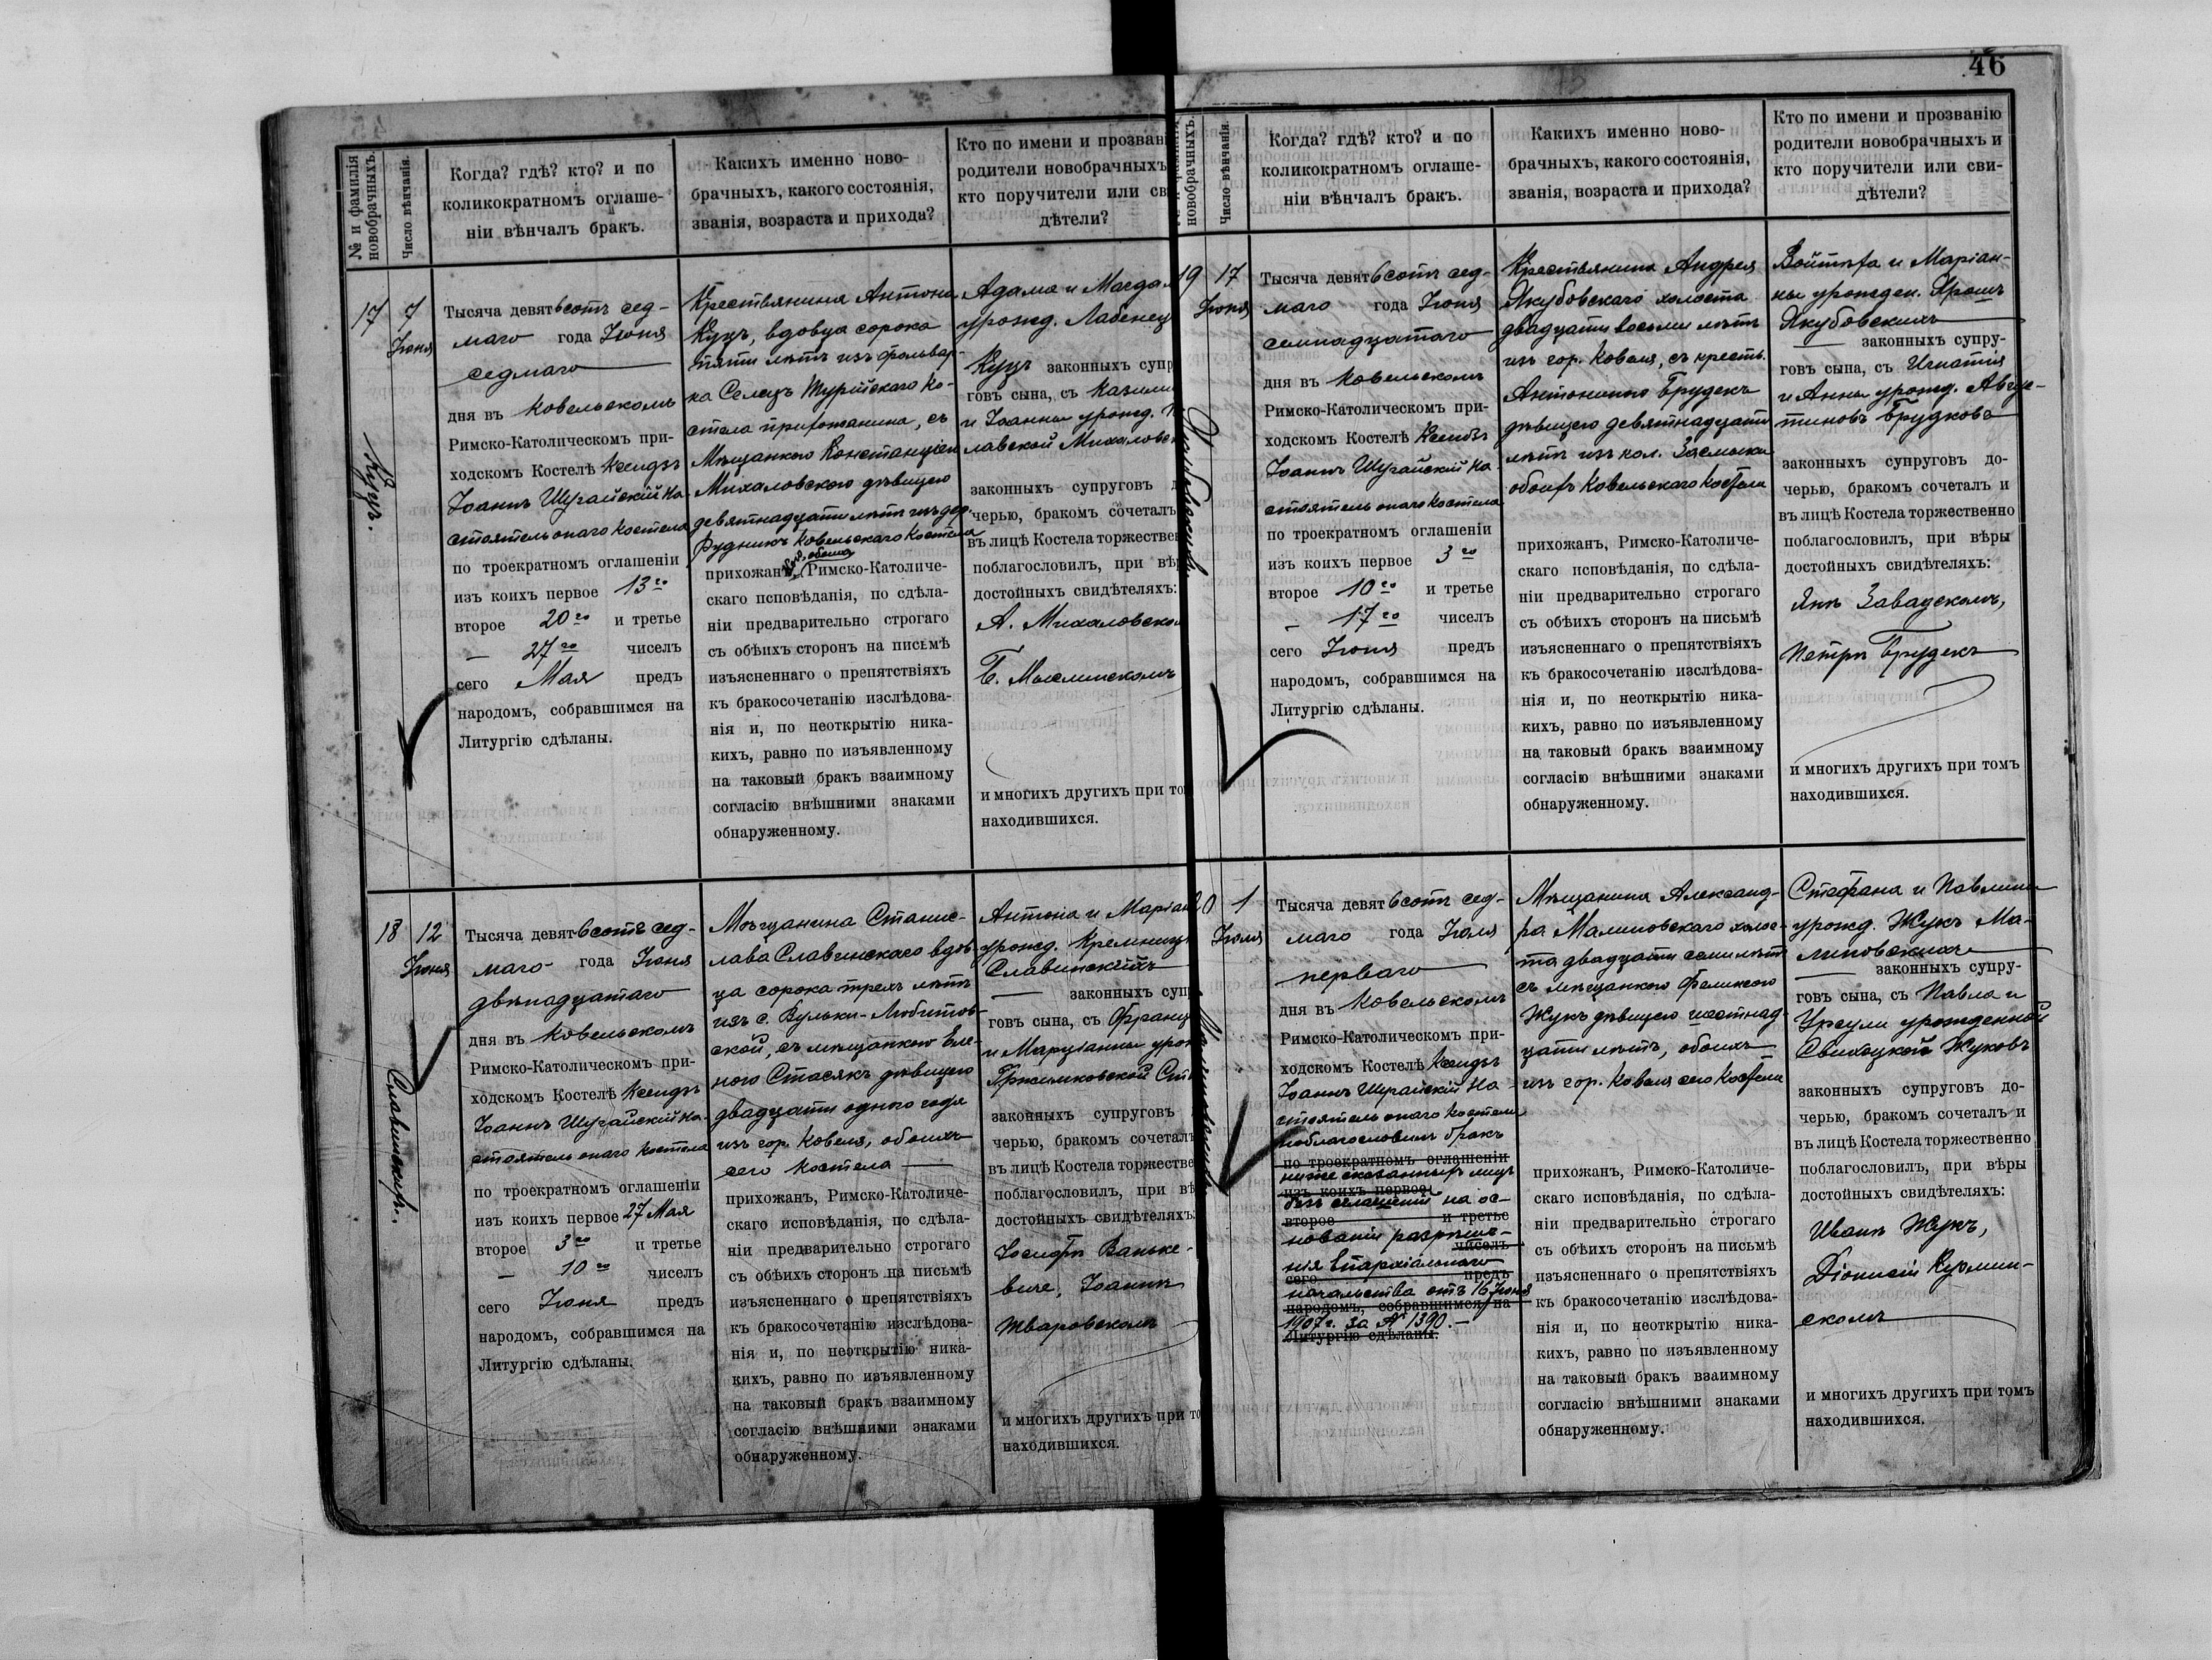 № и фамилія
новобрачныхъ.
Число вѣнчанія.
Когда? гдѣ? кто? и по
коликократномъ оглаше-
ніи вѣнчалъ бракъ.
Какихъ именно ново-
брачныхъ, какого состоянія,
званія, возраста и прихода?
Кто по имени и прозван
родители новобрачныхъ
кто поручители или св
дѣтели?
17
7
Іюня
Куцъ.
Тысяча девятьсотъ сед-
маго года Іюня
седмаго
дня въ Ковельскомъ
Римско-Католическомъ при-
ходскомъ Костелѣ Ксендзъ
Іоаннъ Шугайскій На-
стоятель онаго Костела
по троекратномъ оглашеніи
изъ коихъ первое 13го
второе 20го и третье
27го чиселъ
сего Мая предъ
народомъ, собравшимся на
Литургію сдѣланы.
Крестьянина Антона
Куцъ, вдовца сорока
пяти лѣтъ изъ фольвар-
ка Селецъ Турійскаго Ко-
стела прихожанина, съ
Мѣщанкою Констанціею
Михаловскою дѣвицею
девятнадцати лѣтъ изъ дер.
Рудникъ Ковельскаго Костела
прихожан обоихъ Римско-Католиче-
скаго исповѣданія, по сдѣла-
ніи предварительно строгаго
съ обѣихъ сторонъ на письмѣ
изъясненнаго о препятствіяхъ
къ бракосочетанію изслѣдова-
нія и, по неоткрытію ника-
кихъ, равно по изъявленному
на таковый бракъ взаимному
согласію внѣшними знаками
обнаруженному.
Адама и Магдал
урожд. Лабенец
Куцъ законныхъ супр
говъ сына, съ Казими
и Іоанны урожд.
лавской Михаловск
законныхъ супруговъ д
черью, бракомъ сочеталъ
въ лицѣ Костела торжествен
поблагословилъ, при вѣр
достойныхъ свидѣтеляхъ:
А. Михаловско
Б. Мыслинскомъ
и многихъ другихъ при то
находившихся.
18
12
Іюня
Славинскихъ.
Тысяча девятьсотъ сед-
маго года Іюня
двѣнадцатаго
дня въ Ковельскомъ
Римско-Католическомъ при-
ходскомъ Костелѣ Ксендзъ
Іоаннъ Шугайскій На-
стоятель онаго Костела
по троекратномъ оглашеніи
изъ коихъ первое 27 Мая
второе 3го и третье
10го чиселъ
сего Іюня предъ
народомъ, собравшимся на
Литургію сдѣланы.
Мѣщанина Станис-
лава Славинскаго вдов-
ца сорока трехъ лѣтъ
изъ с. Вульки-Любитов-
ской, съ мѣщанкою Еле-
ною Стасякъ дѣвицею
двадцати одного года
изъ гор. Ковеля, обоихъ
сего Костела
прихожанъ, Римско-Католиче-
скаго исповѣданія, по сдѣла-
ніи предварительно строгаго
съ обѣихъ сторонъ на письмѣ
изъясненнаго о препятствіяхъ
къ бракосочетанію изслѣдова-
нія и, по неоткрытію ника-
кихъ, равно по изъявленному
на таковый бракъ взаимному
согласію внѣшними знаками
обнаруженному.
Антонія и Маріан
урожд. Кремниц
Славинскихъ
законныхъ суп
говъ сына, съ Франц
и Марціанны урож
Гржимковской Ст
законныхъ супруговъ
черью, бракомъ сочеталъ
въ лицѣ Костела торжестве
поблагословилъ, при вѣ
достойныхъ свидѣтеляхъ:
Іосифѣ Ваньке-
виче, Іоаннѣ
Тваровскомъ
и многихъ другихъ при то
находившихся.
46
новобрачныхъ.
Число вѣнчанія.
Когда? гдѣ? кто? и по
коликократномъ оглаше-
ніи вѣнчалъ бракъ.
Какихъ именно ново-
брачныхъ, какого состоянія,
званія, возраста и прихода?
Кто по имени и прозванію
родители новобрачныхъ и
кто поручители или сви-
дѣтели?
19
17
Іюня
Якубовскихъ.
Тысяча девятьсотъ сед-
маго года Іюня
семнадцатаго
дня въ Ковельскомъ
Римско-Католическомъ при-
ходскомъ Костелѣ Ксендзъ
Іоаннъ Шугайскій На-
стоятель онаго Костела
по троекратномъ оглашеніи
изъ коихъ первое 3го
второе 10го и третье
17го чиселъ
сего Іюня предъ
народомъ, собравшимся на
Литургію сдѣланы.
Крестьянина Андрея
Якубовскаго холоста
двадцати восьми лѣтъ
изъ гор. Ковеля, съ кресть.
Антониною Брудекъ
дѣвицею девятнадцати
лѣтъ изъ кол. Засмыки
обоихъ Ковельскаго Костела
прихожанъ, Римско-Католиче-
скаго исповѣданія, по сдѣла-
ніи предварительно строгаго
съ обѣихъ сторонъ на письмѣ
изъясненнаго о препятствіяхъ
къ бракосочетанію изслѣдова-
нія и, по неоткрытію ника-
кихъ, равно по изъявленному
на таковый бракъ взаимному
согласію внѣшними знаками
обнаруженному.
Войтѣха и Маріан-
ны урожден. Ярошъ
Якубовскихъ
законныхъ супру-
говъ сына, съ Игнатія
и Анны урожд. Авгус-
тиновъ Брудковъ
законныхъ супруговъ до-
черью, бракомъ сочеталъ и
въ лицѣ Костела торжественно
поблагословилъ, при вѣры
достойныхъ свидѣтеляхъ:
Янѣ Завадскомъ,
Петрѣ Брудекъ
и многихъ другихъ при томъ
находившихся.
20
1
Іюля
Малиновскихъ
Тысяча девятьсотъ сед-
маго года Іюля
перваго
дня въ Ковельскомъ
Римско-Католическомъ при-
ходскомъ Костелѣ Ксендзъ
Іоаннъ Шугайскій На-
стоятель онаго Костела
поблагословилъ бракъ
по троекратномъ оглашеніи
нижесказанныхъ лицъ
изъ коихъ первое
безъ оглашеній на ос-
второе и третье
нованіи разрѣше-
чиселъ
нія Епархіальнаго
сего предъ
начальства отъ 16 Іюня
народомъ, собравшимся на
1907 г. за № 1390.—
Литургію сдѣланы.
Мѣщанина Александ-
ра Малиновскаго холос-
та двадцати семи лѣтъ
съ мѣщанкою Феликсою
Жукъ дѣвицею шестнад-
цати лѣтъ, обоихъ
изъ гор. Ковеля сего Костела
прихожанъ, Римско-Католиче-
скаго исповѣданія, по сдѣла-
ніи предварительно строгаго
съ обѣихъ сторонъ на письмѣ
изъясненнаго о препятствіяхъ
къ бракосочетанію изслѣдова-
нія и, по неоткрытію ника-
кихъ, равно по изъявленному
на таковый бракъ взаимному
согласію внѣшними знаками
обнаруженному.
Стефана и Павлины
урожд. Жукъ Ма-
линовскихъ
законныхъ супру-
говъ сына, съ Павла и
Урсули урожденной
Свихоцкой Жуковъ
законныхъ супруговъ до-
черью, бракомъ сочеталъ и
въ лицѣ Костела торжественно
поблагословилъ, при вѣры
достойныхъ свидѣтеляхъ:
Иванѣ Жукъ,
Діонисіи Кузмин-
скомъ
и многихъ другихъ при томъ
находившихся.